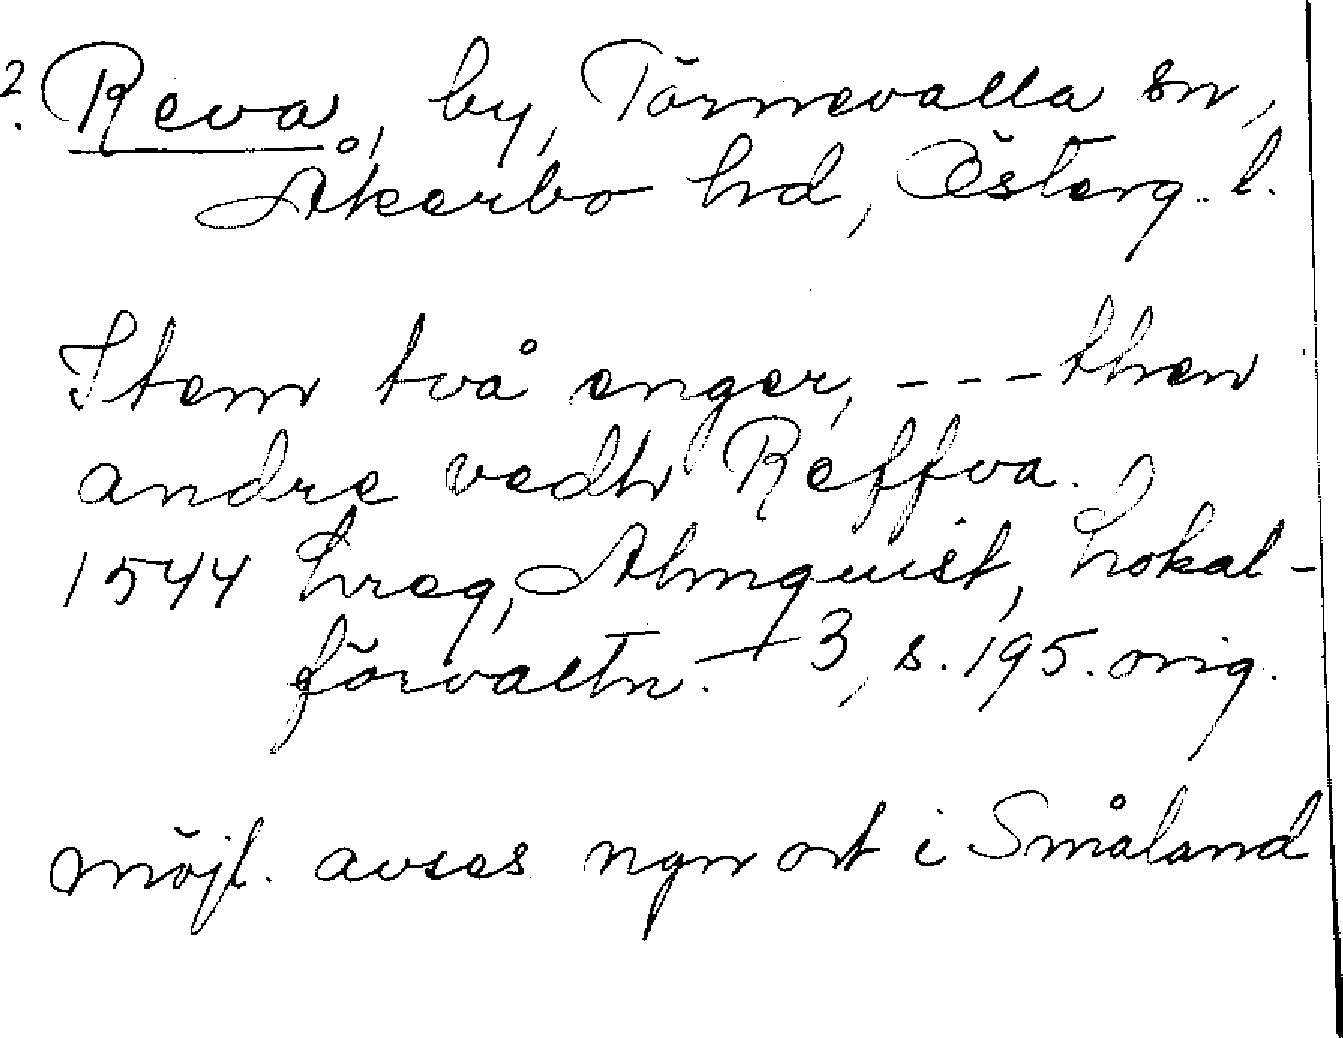 ? Reva, by, Törnevalla sn,
Åkerbo hd, Österg. l.
Item två enger, --- then
andre vedh Reffva.
1544 hreg, Almquist, Lokal-
förvaltn. 3, s. 195. orig.
möjl. avses ngn ort i Småland